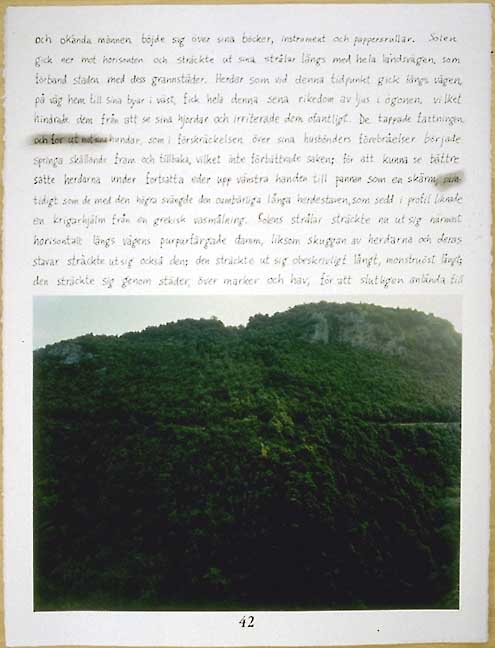 och okända männen böjde sig över sina böcker, instrument och pappersrullar. Solen
gick ner mot horisonten och sträckte ut sina strålar längs med hela landsvägen, som
förband staden med dess grannstäder. Herdar som vid denna tidpunkt gick längs vägen,
på väg hem till sina byar i väst, fick hela denna sena rikedom av ljus i ögonen, vilket
hindrade dem från att se sina hjordar och irriterade dem ofantligt. De tappade fattningen
och for ut mot sina hundar, som i förskräckelsen över sina husbönders förebråelser började
springa skällande fram och tillbaka, vilket inte förbättrade saken; för att kunna se bättre
satte herdarna under fortsatta eder upp vänstra handen till pannan som en skärm,
tidigt som de med den högra svängde den oumbärliga långa herdestaven, som sedd i profil liknade
en krigarhjälm från en grekisk vasmålning. Solens strålar sträckte nu ut sig närmast
horisontalt längs vägens purpurfärgade damm, liksom skuggan av herdarna och deras
stavar sträckte ut sig också den; den sträckte ut sig obeskrivligt långt, monstruöst långt;
den sträckte sig genom städer, över marker och hav, för att slutligen anlända till
42